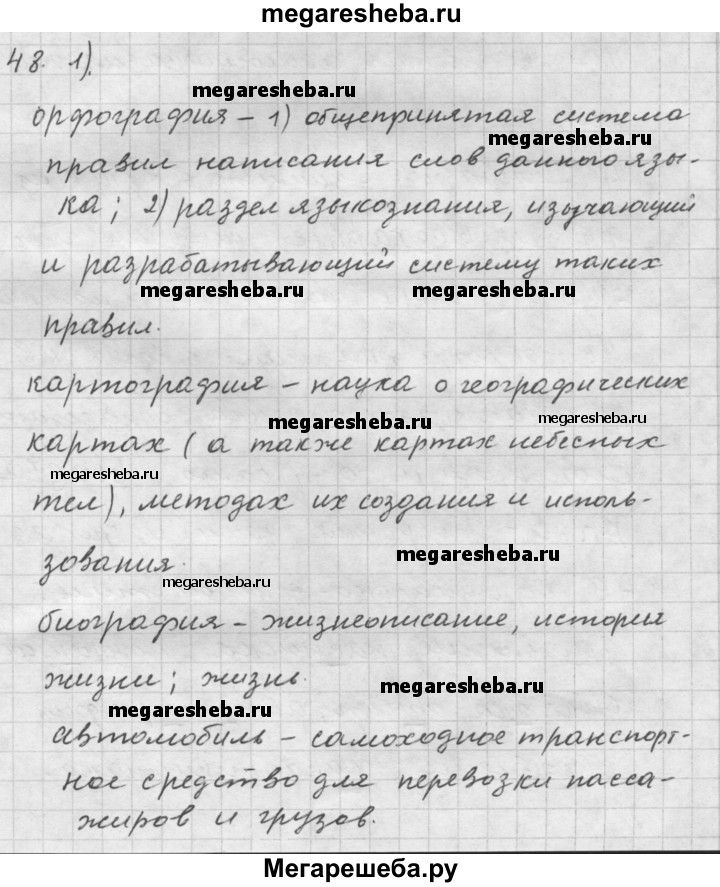 megaresheba.ru
48. 1).
megaresheba.ru
орфография – 1) общепринятая система
megaresheba.ru
правил написания слов данного язы-
ка; 2) раздел языкознания, изучающий
и разрабатывающий систему таких
megaresheba.ru megaresheba.ru
правил.
картография – наука о географических
megaresheba.ru megaresheba.ru
картах (а также картах небесных
megaresheba.ru
тел), методах их создания и исполь-
зования.
megaresheba.ru
megaresheba.ru
биография – жизнеописание, история
жизни; жизнь.
megaresheba.ru
megaresheba.ru
автомобиль – самоходное транспорт-
ное средство для перевозки пасса-
жиров и грузов.
Мегарешеба.ру